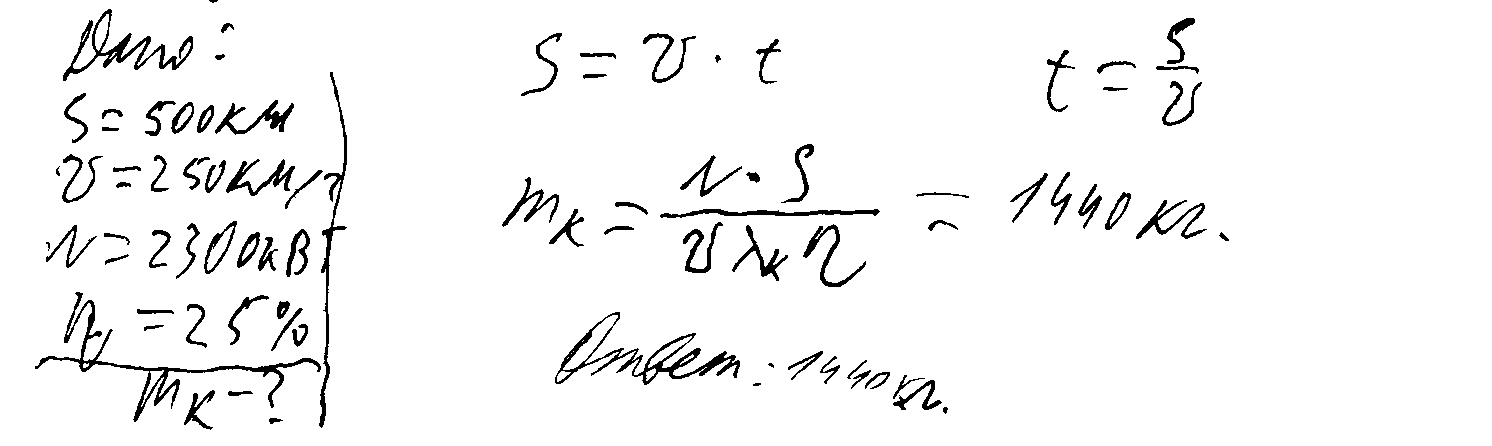 Дано:
S = 500 км
υ = 250 км/ч
N = 2300 кВт
η = 25 %
mк - ?
S = υ · t
t = S/υ
mк = N · S / υ λк η = 1440 кг.
Ответ: 1440 кг.